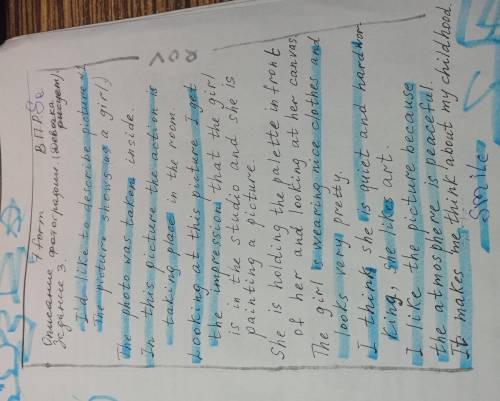 7 form ВПР
Описание фотографии. (девочка рисует).
Задание 3.
I'd like to describe picture
The picture shows us a girl)
The photo was taken inside.
In this picture the action is
taking place in the room.
Looking at this picture I get
the impression that the girl
is in the studio and she is
painting a picture.
She is holding the palette in front
of her and looking at her canvas.
The girl is wearing nice clothes and
looks very pretty.
I think she is quiet and hardwor-
king, she likes art.
I like the picture because
the atmosphere is peaceful.
It makes me think about my childhood.
Smile